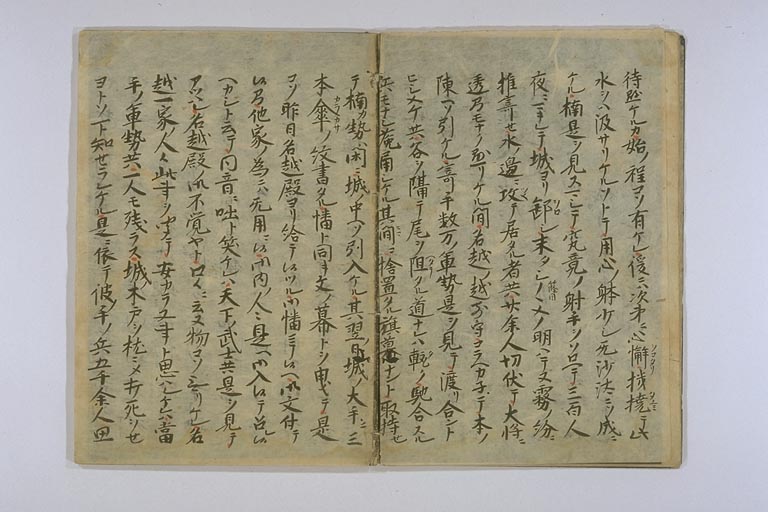 待懸ケルカ始ノ程コソ有ケレ後ニハ次第ニ心懈機撓テ此
水ヲハ汲サリケルソトテ用心ノ躰少シ無沙汰ニソ成ニ
ケル楠是ヲ見スマシテ究竟ノ射手ヲソロヘテ三百人
夜ニマキレテ城ヨリ下シ未タシノヽメノ明ハテヌ霧ノ紛ニ
推寄セ水ノ邊ニ攻テ居タル者共廿余人切伏テ大将ニ
透モナク切リケル間名越ノ越前守コラヘカネテ本ノ
陳ヘソ引ケル寄手数万ノ軍勢是ヲ見テ渡リ合ント
ヒシメケ共谷ヲ隔テ尾ヲ阻タル道ナレハ輙ク馳合スル
兵モナシ兎角シケル其間ニ捨置タル旗幕ナント取持セ
テ楠カ勢閑ニ城ノ中ヘソ引入ケル其翌日城ノ大手ニ三
本傘ノ紋書タル幡ト同キ文ノ幕トヲ曳テ是
コソ昨日名越殿ヨリ給テ候ツル御幡ニテ候ヘ御文付テ
候乃他家ノ為ニハ無用ニ候御内ノ人々是ヘ御入候テ召レ候
ヘカシト云テ同音ニ咄ト笑ケレハ天下ノ武士共是ヲ見テ
アハレ名越殿ノ不覚ヤト口々ニ云ヌ物コソナカリケレ名
越一家ノ人々此事ヲ聞テ安カラヌ事ト思ハレケレハ當
手ノ軍勢共一人モ残ラス城ノ木戸ヲ枕ニメ打死ヲセ
ヨトソ下知セラレケル是ニ依テ彼手ノ兵五千余人思